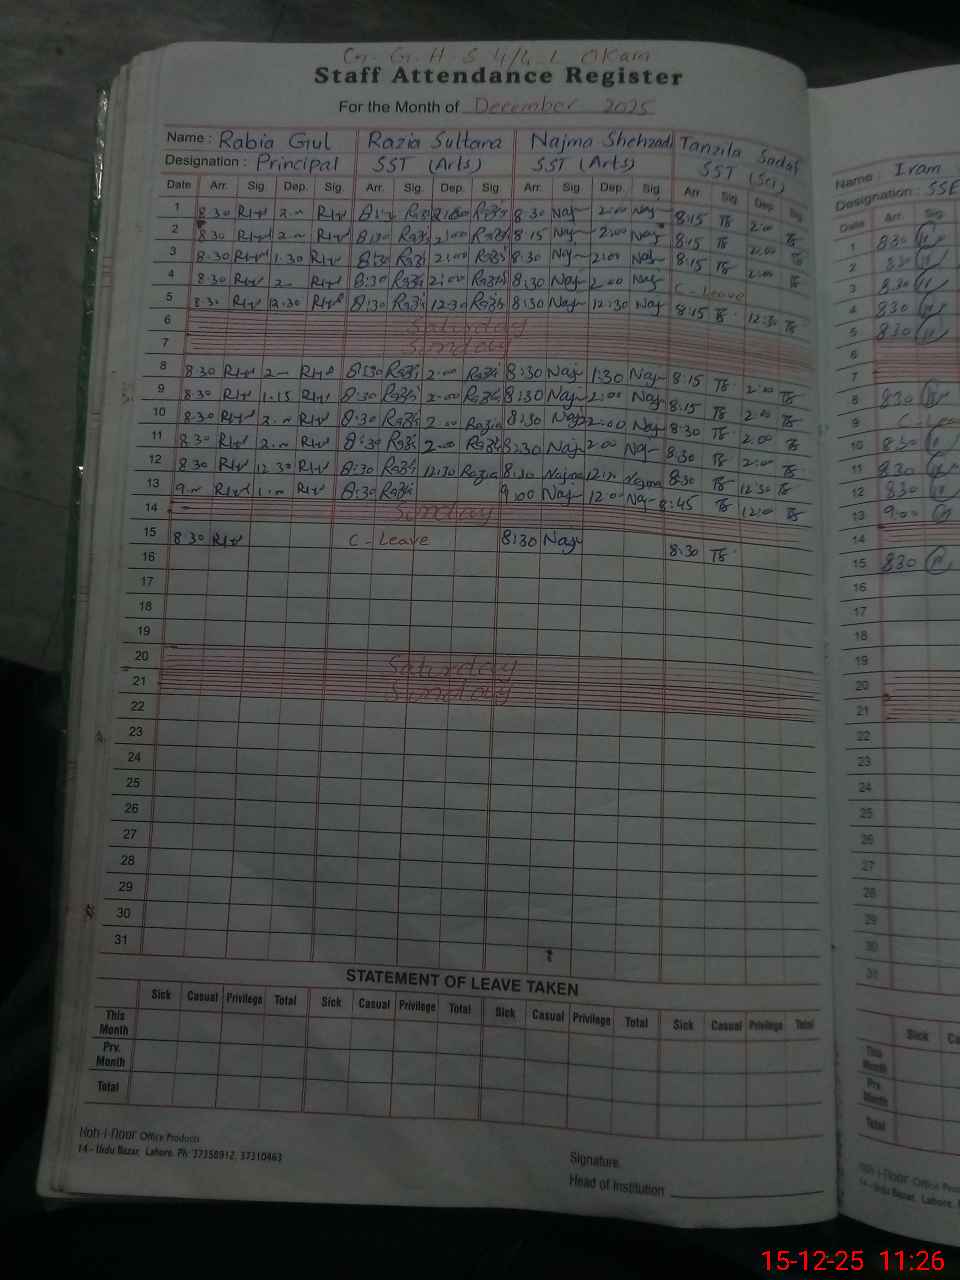 G. G. H. S 4/4-L Okara
Staff Attendance Register
For the Month of December 2025
Name : Rabia Gul Razia Sultana Najma Shehzadi Tanzila Sadaf
Designation : Principal SST (Arts) SST (Arts) SST (Sci)
Date Arr. Sig. Dep. Sig. Arr. Sig. Dep. Sig. Arr. Sig. Dep. Sig. Arr. Sig. Dep. Sig.
1 8:30 8:30 Naj 2:00 Naj 8:15 TS 2:00 TS
2 8:30 8:30 2:00 8:15 Naj 2:00 Naj 8:15 TS 2:00 TS
3 8:30 1:30 8:30 2:00 8:30 Naj 2:00 Naj 8:15 TS 2:00 TS
4 8:30 8:30 2:00 8:30 Naj 2:00 Naj C-Leave
5 8:30 12:30 8:30 12:30 8:30 Naj 12:30 Naj 8:15 TS 12:30 TS
6 Saturday
7 Sunday
8 8:30 8:30 2:00 8:30 Naj 1:30 Naj 8:15 TS 2:00 TS
9 8:30 1:15 8:30 2:00 8:30 Naj 2:00 Naj 8:15 TS 2:00 TS
10 8:30 8:30 2:00 Razia 8:30 Naj 2:00 Naj 8:30 TS 2:00 TS
11 8:30 8:30 2:00 Razia 8:30 Naj 2:00 Naj 8:30 TS 2:00 TS
12 8:30 12:30 8:30 12:30 Razia 8:30 Najma Najma 8:30 TS 12:30 TS
13 8:30 9:00 Naj 12:00 Naj 8:45 TS 12:00 TS
14 Sunday
15 8:30 C-Leave 8:30 Naj 8:30 TS
16
17
18
19
20 Saturday
21 Sunday
22
23
24
25
26
27
28
29
30
31
STATEMENT OF LEAVE TAKEN
Sick Casual Privilege Total Sick Casual Privilege Total Sick Casual Privilege Total Sick Casual Privilege Total
This
Month
Prv.
Month
Total
Koh-i-Noor Office Products
14 - Urdu Bazar, Lahore. Ph: 37358912, 37310463
Signature
Head of Institution
Name : Iram
Designation : SSE
Date Arr. Sig.
1 8:30
2 8:30
3 8:30
4 8:30
5 8:30
6
7
8 8:30
9 C-Lea
10 8:30
11 8:30
12 8:30
13 9:00
14
15 8:30
16
17
18
19
20
21
22
23
24
25
26
27
28
29
30
31
Sick Ca
This
Month
Prv.
Month
Total
Koh-i-Noor Office Produ
14 - Urdu Bazar, Lahore.
15-12-25 11:26